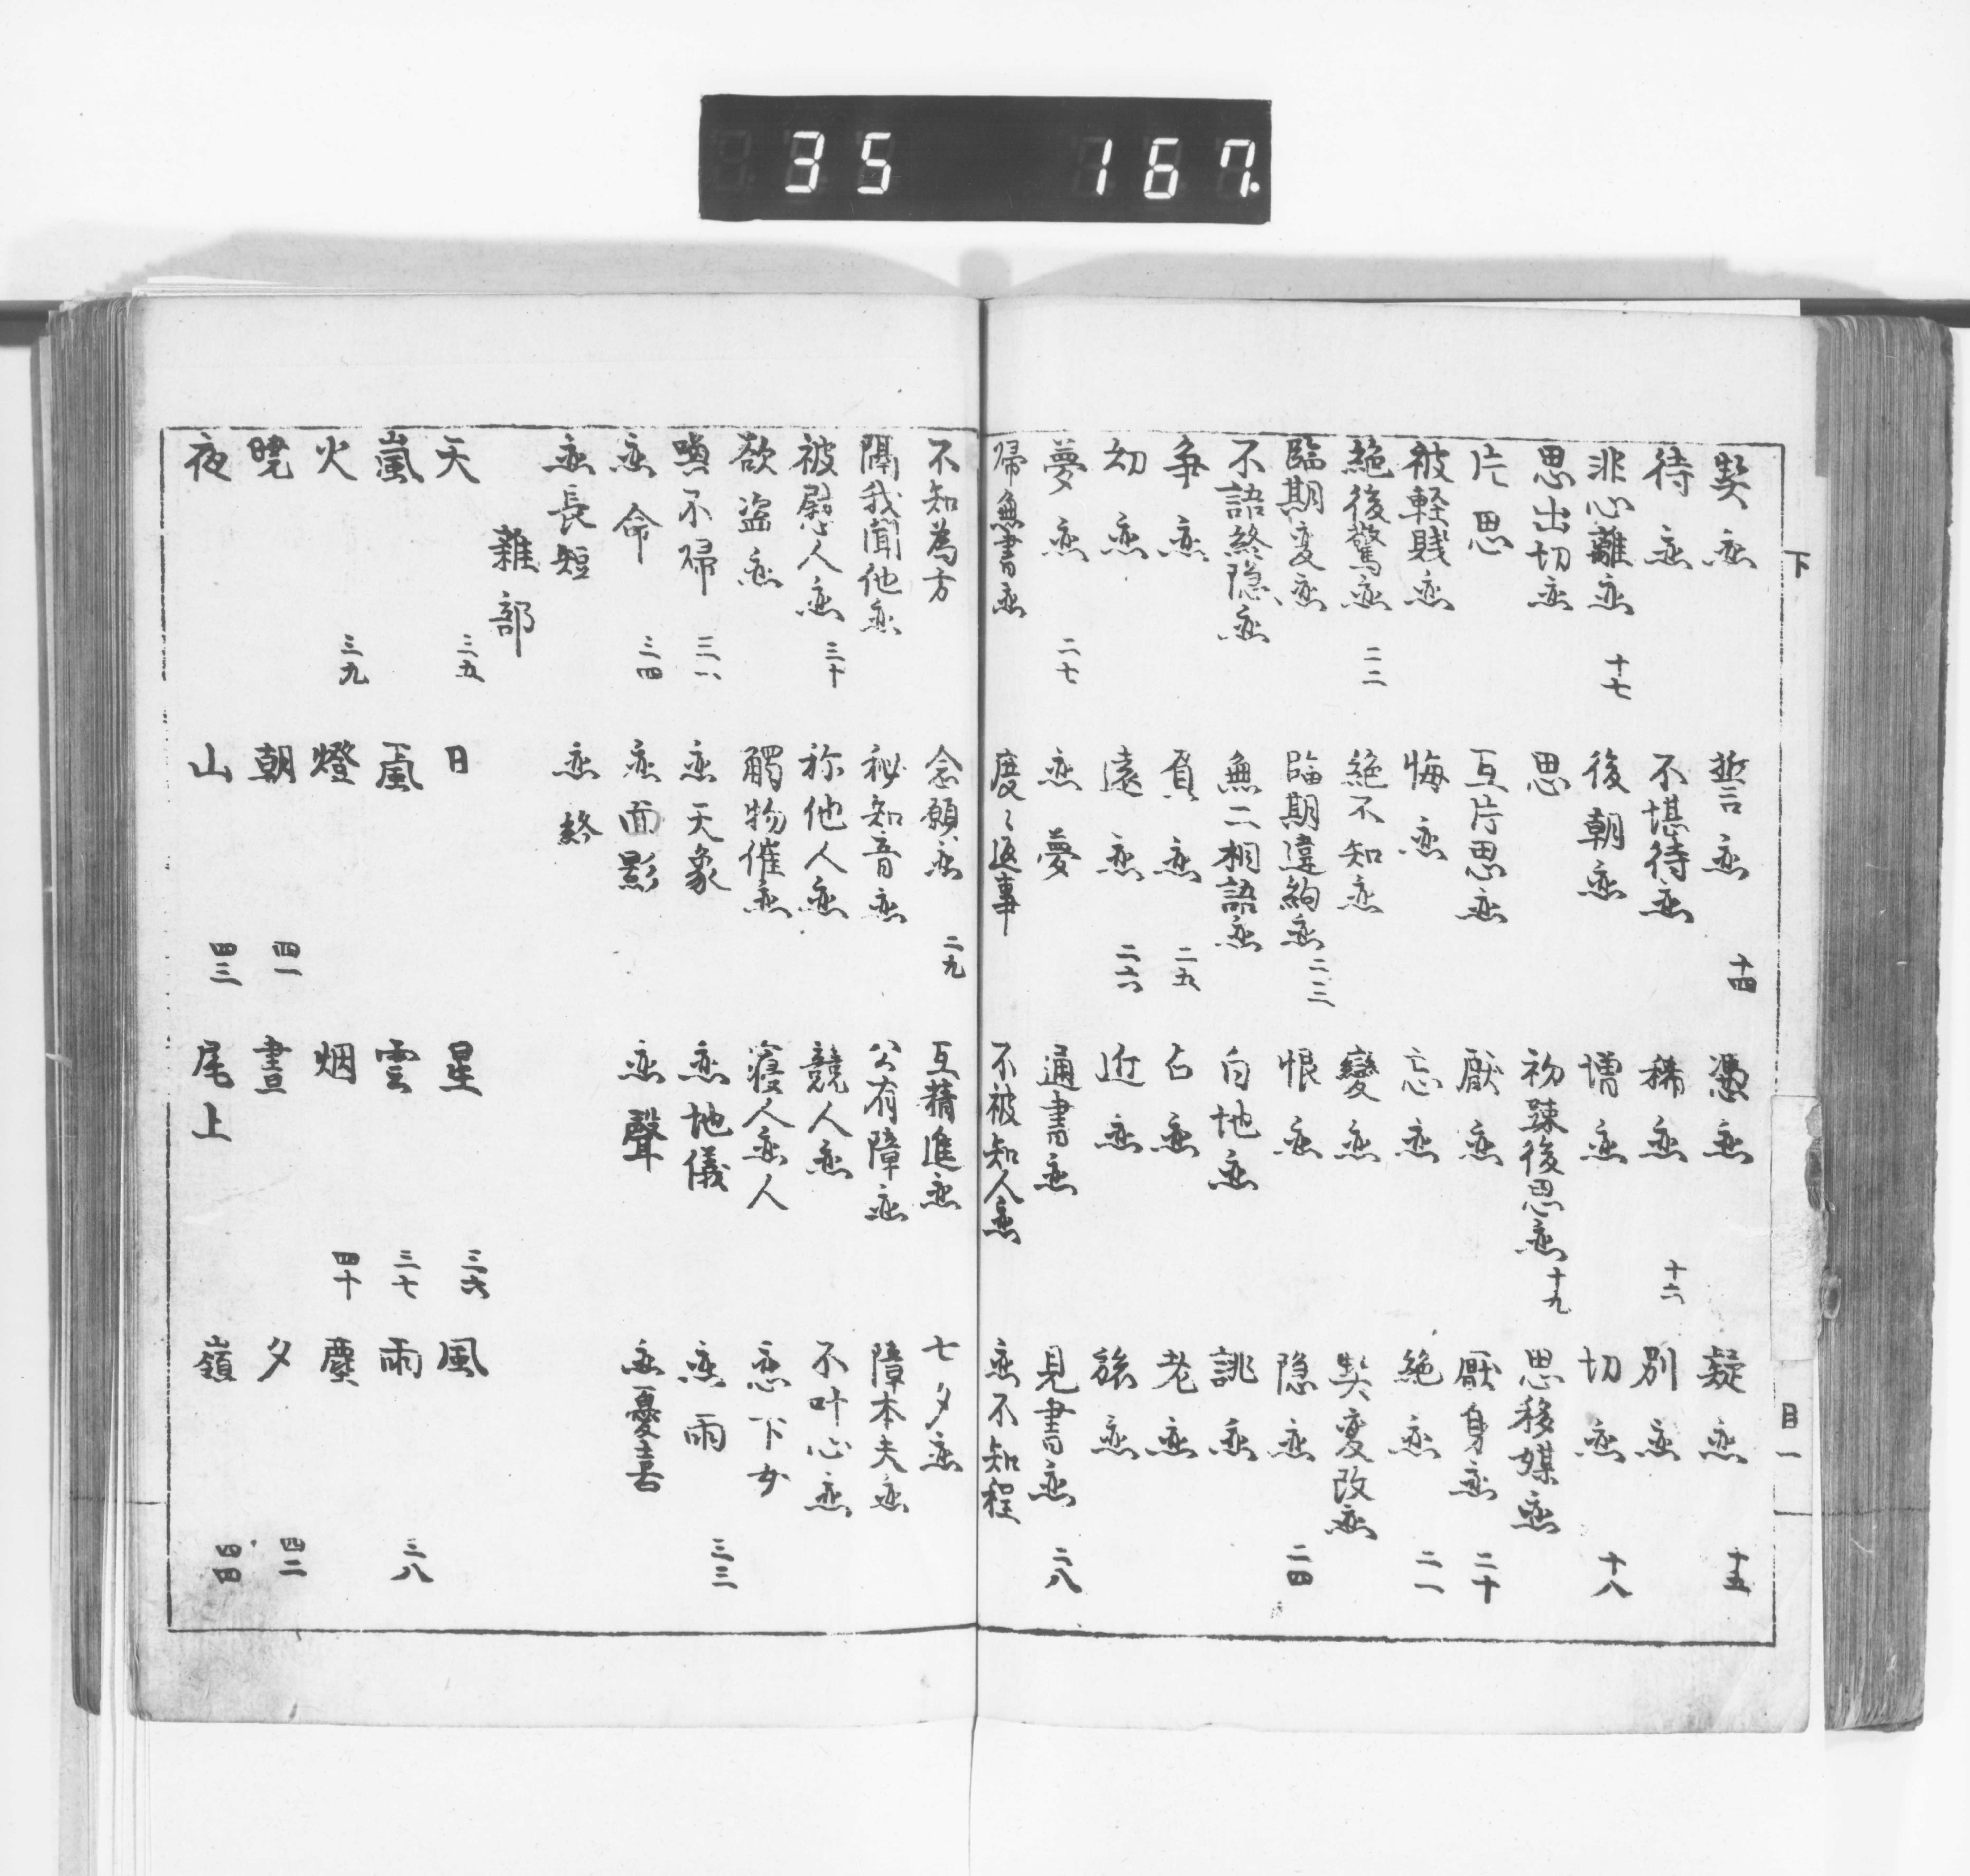 35 167.
下
目一
契恋 誓恋 十四 憑恋 疑恋 十五
待恋 不堪待恋 稀恋 十六 別恋
非心離恋 十七 後朝恋 増恋 切恋 十八
思出切恋 思 初疎後思恋 十九 思移媒恋
片思 互片思恋 厭恋 厭身恋 二十
被軽賎恋 悔恋 忘恋 絶恋 二一
絶後驚恋 二二 絶不知恋 變恋 契変改恋
臨期変恋 臨期違約恋 二三 恨恋 隠恋 二四
不語終隠恋 無二相語恋 白地恋 誂恋
争恋 負恋 二五 占恋 老恋
幼恋 遠恋 二六 近恋 旅恋
夢恋 二七 恋夢 通書恋 見書恋 二八
帰無書恋 度々返事 不被知人恋 恋不知程
不知為方 念願恋 二九 互精進恋 七夕恋
隔我聞他恋 秘知音恋 公有障恋 障本夫恋
被慰人恋 三十 称他人恋 競人恋 不叶心恋
欲盗恋 觸物催恋 寝人恋人 恋下女
喚不帰 三一 恋天象 恋地儀 恋雨 三三
恋命 三四 恋面影 恋聲 恋憂喜
恋長短 恋終
雜部
天 三五 日 星 三六 風
嵐 凩 雲 三七 雨 三八
火 三九 燈 烟 四十 塵
暁 朝 四一 晝 夕 四二
夜 山 四三 尾上 嶺 四四